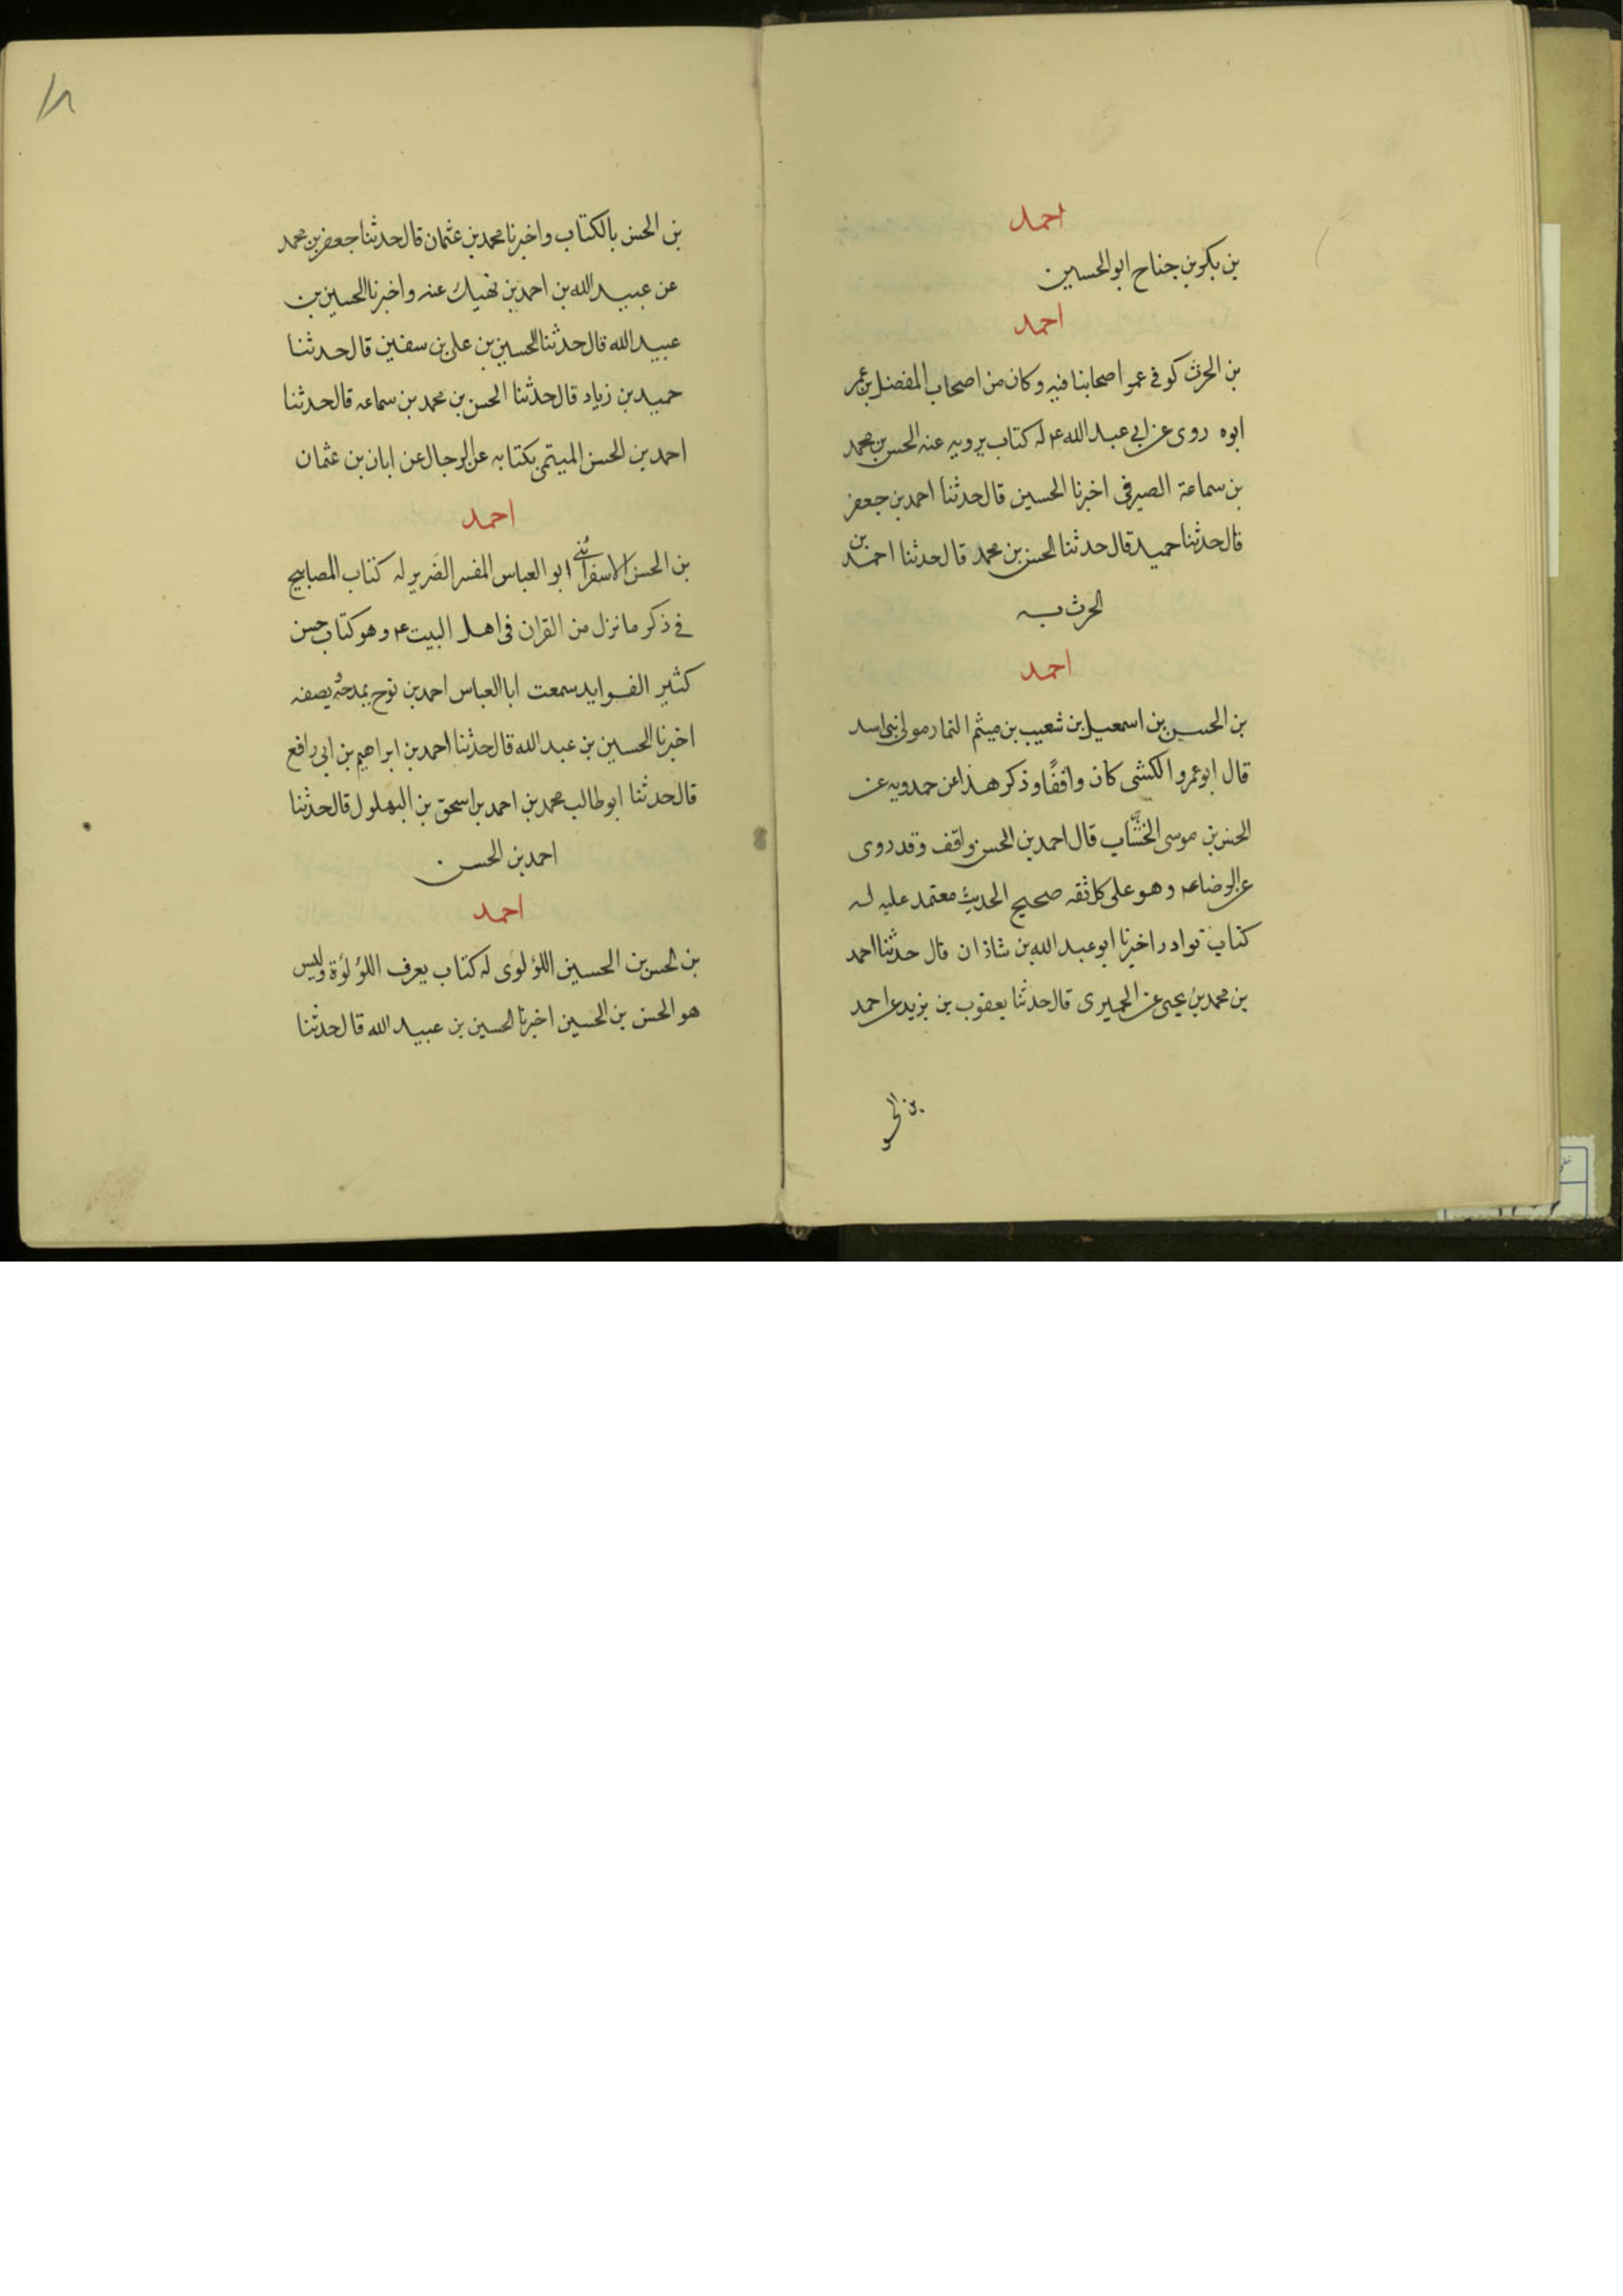 احمد
بن بكر بن جناح ابو الحسين
احمد
بن الحرث كوفى عمر اصحابنا فيه وكان من اصحاب المفضل بن عمر
ابوه روى عن ابى عبد الله ع له كتاب يرويه عنه الحسن بن محمد
بن سماعة الصيرفى اخبرنا الحسين قال حدثنا احمد بن جعفر
قال حدثنا حميد قال حدثنا الحسن بن محمد قال حدثنا احمد بن
الحرث به
احمد
بن الحسن بن اسمعيل بن شعيب بن ميثم التمار مولى بنى اسد
قال ابو عمرو الكشى كان واقفًا وذكر هذا عن حمدويه عن
الحسن بن موسى الخشّاب قال احمد بن الحسن واقف وقد روى
عن الرضا ع وهو على كل ثقه صحيح الحديث معتمد عليه له
كتاب نوادر اخبرنا ابو عبد الله بن شاذان قال حدثنا احمد
بن محمد بن يحيى عن الحميرى قال حدثنا يعقوب بن يزيد عن احمد
بن الحسن
١٨
بن الحسن بالكتاب واخبرنا محمد بن عثمان قال حدثنا جعفر بن محمد
عن عبيد الله بن احمد بن نهيك عنه واخبرنا الحسين بن
عبيد الله قال حدثنا الحسين بن على بن سفين قال حدثنا
حميد بن زياد قال حدثنا الحسن بن محمد بن سماعه قال حدثنا
احمد بن الحسن الميثمى بكتابه عن الرجال عن ابان بن عثمان
احمد
بن الحسن الاسفرائنى ابو العباس المفسر الضرير له كتاب المصابيح
فى ذكر ما نزل من القران فى اهل البيت ع وهو كتاب حسن
كثير الفوايد سمعت ابا العباس احمد بن نوح يمدحه ويصفه
اخبرنا الحسين بن عبد الله قال حدثنا احمد بن ابراهيم بن ابى رافع
قال حدثنا ابو طالب محمد بن احمد بن اسحق بن البهلول قال حدثنا
احمد بن الحسن
احمد
بن الحسن بن الحسين اللؤلوى له كتاب يعرف اللؤلؤة وليس
هو الحسن بن الحسين اخبرنا الحسين بن عبيد الله قال حدثنا